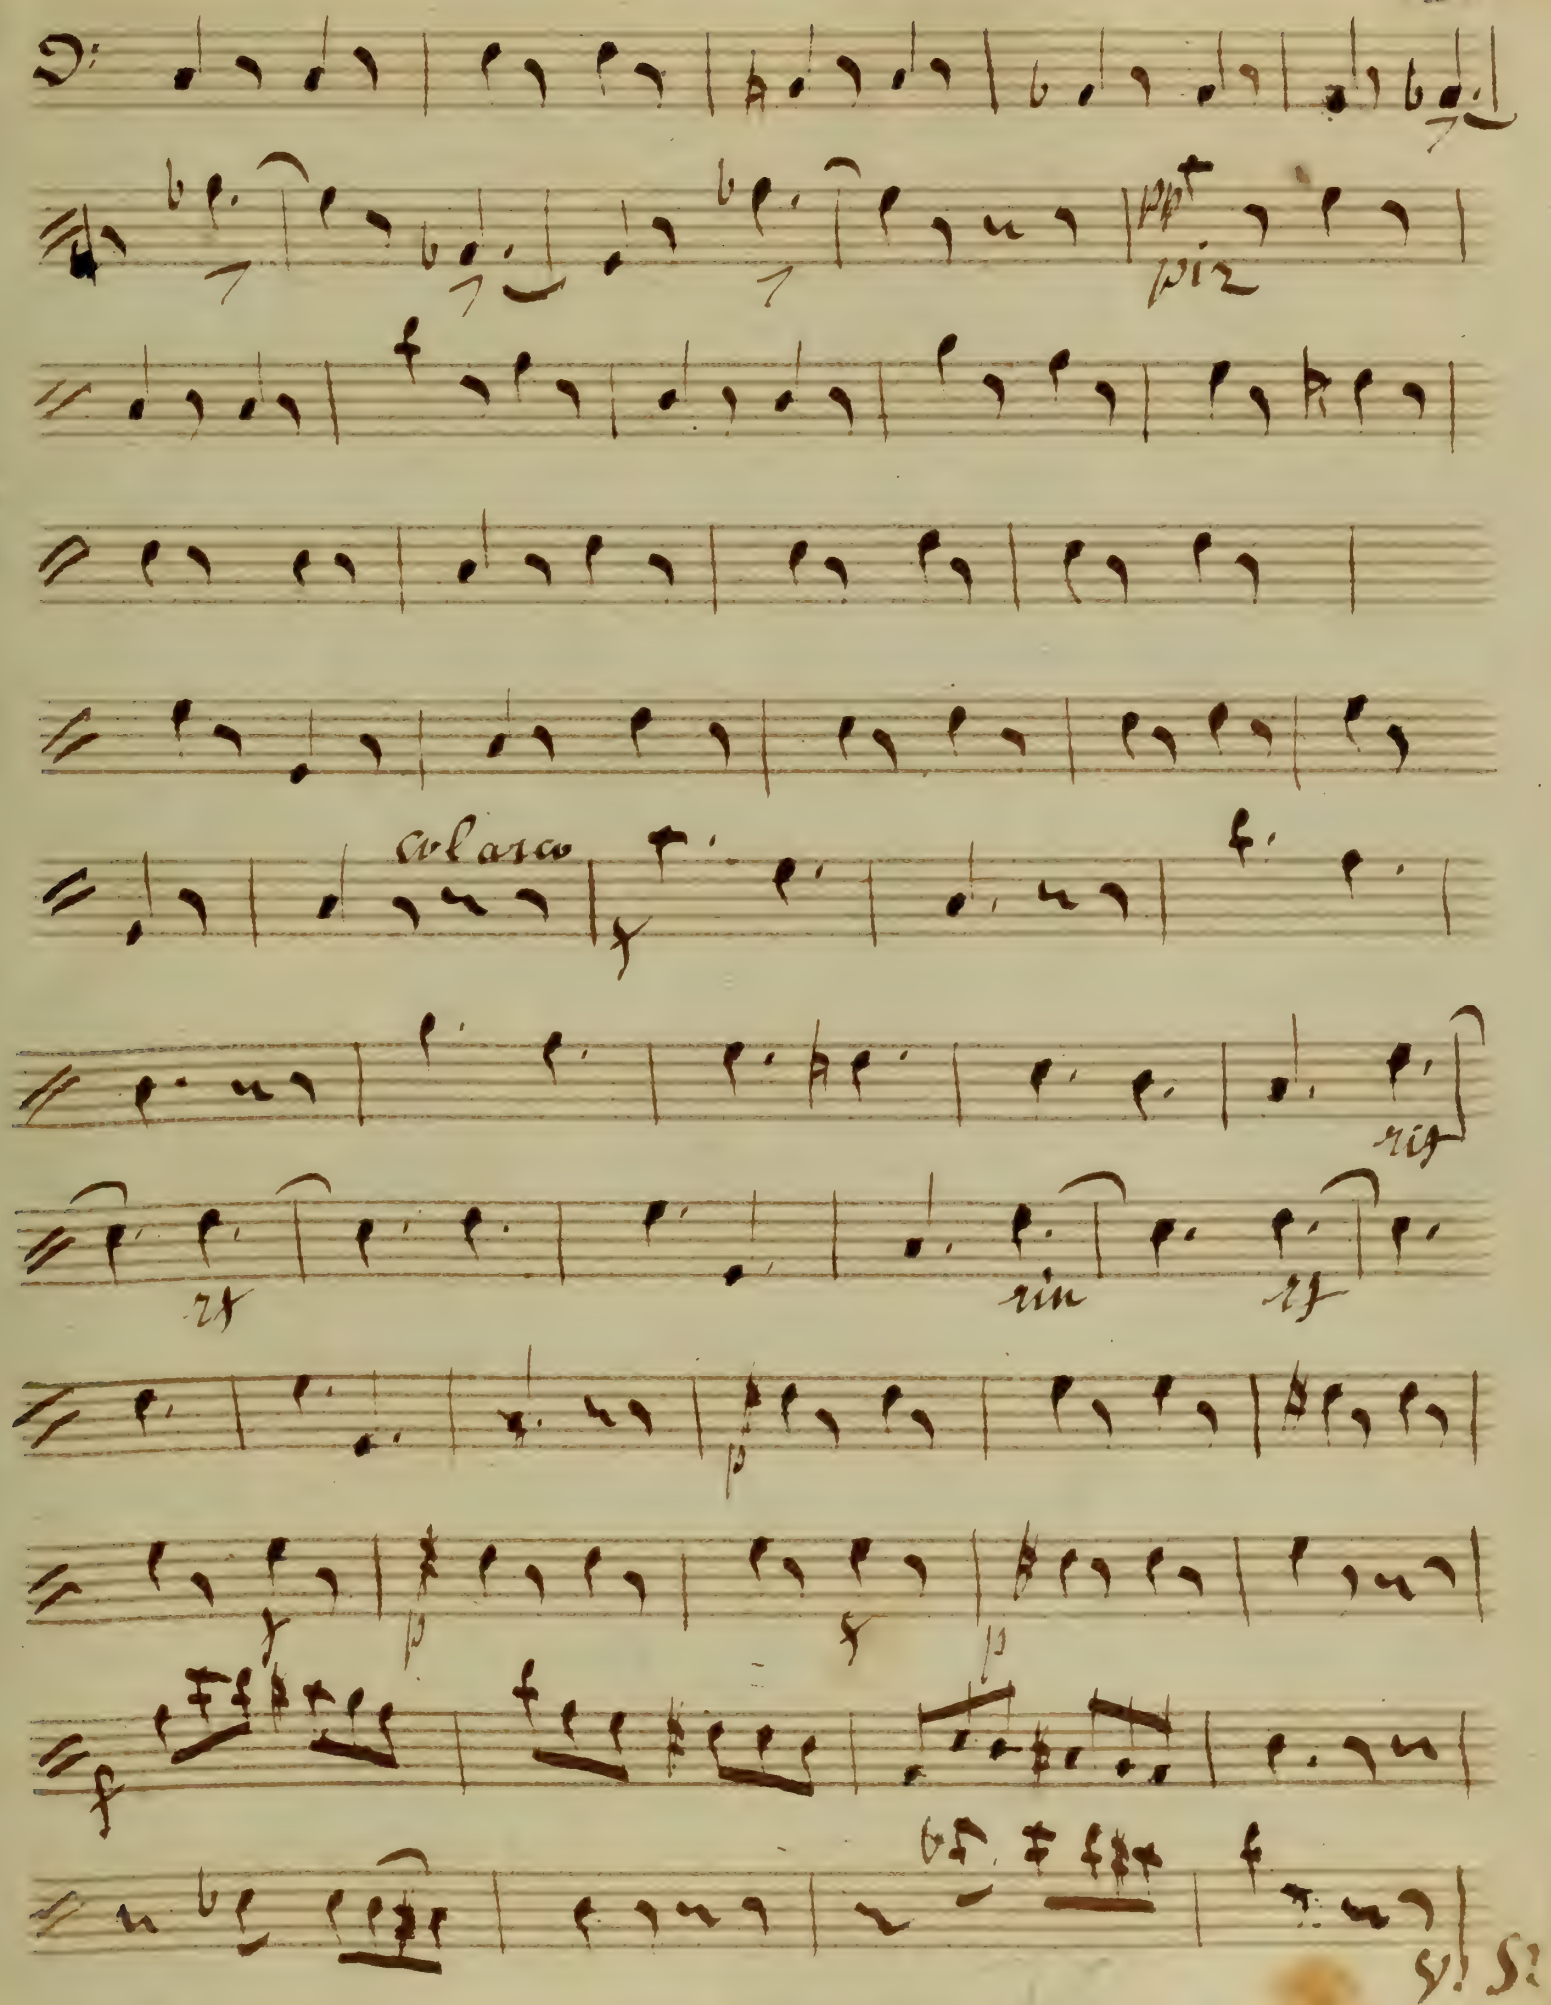 pp
piz
col arco
f
rif
rf
rin
rf
p
f p f p
f
V. S.